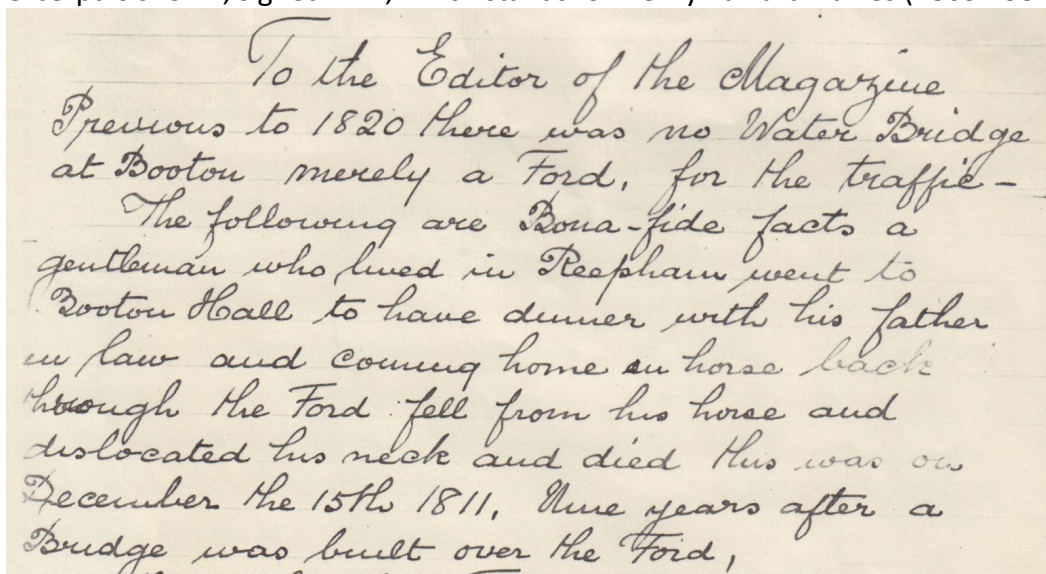 To the Editor of the Magazine
Previous to 1820 there was no Water Bridge
at Booton merely a Ford, for the traffic -
The following are Bona-fide facts a
gentleman who lived in Reepham went to
Booton Hall to have dinner with his father
in law and coming home on horse back
through the Ford fell from his horse and
dislocated his neck and died this was on
December the 15th 1811, Nine years after a
Bridge was built over the Ford,